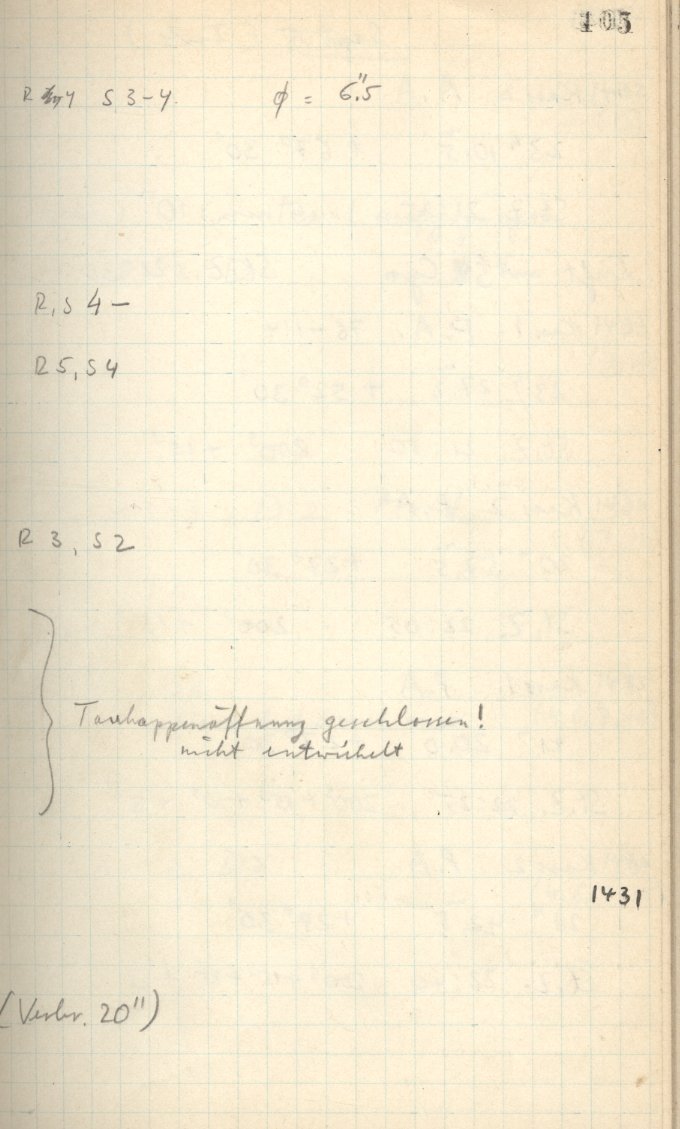 105
R 4 S 3-4. ϕ = 6."5
R, S 4 –
R5, S4
R 3, S2
Taukappenöffnung geschlossen!
nicht entwickelt
1431
(Verbr. 20")